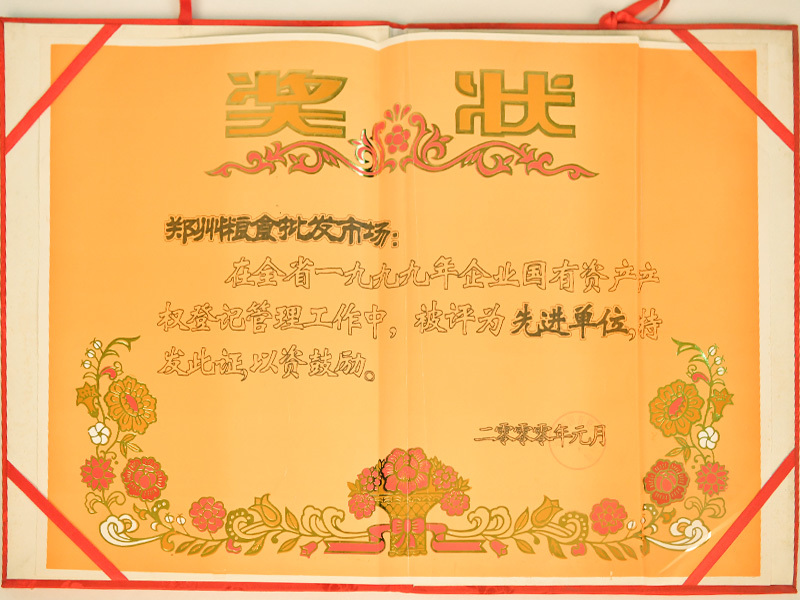 奖状
郑州粮食批发市场：
在全省一九九九年企业国有资产产
权登记管理工作中，被评为先进单位，特
发此证，以资鼓励。
二零零零年元月